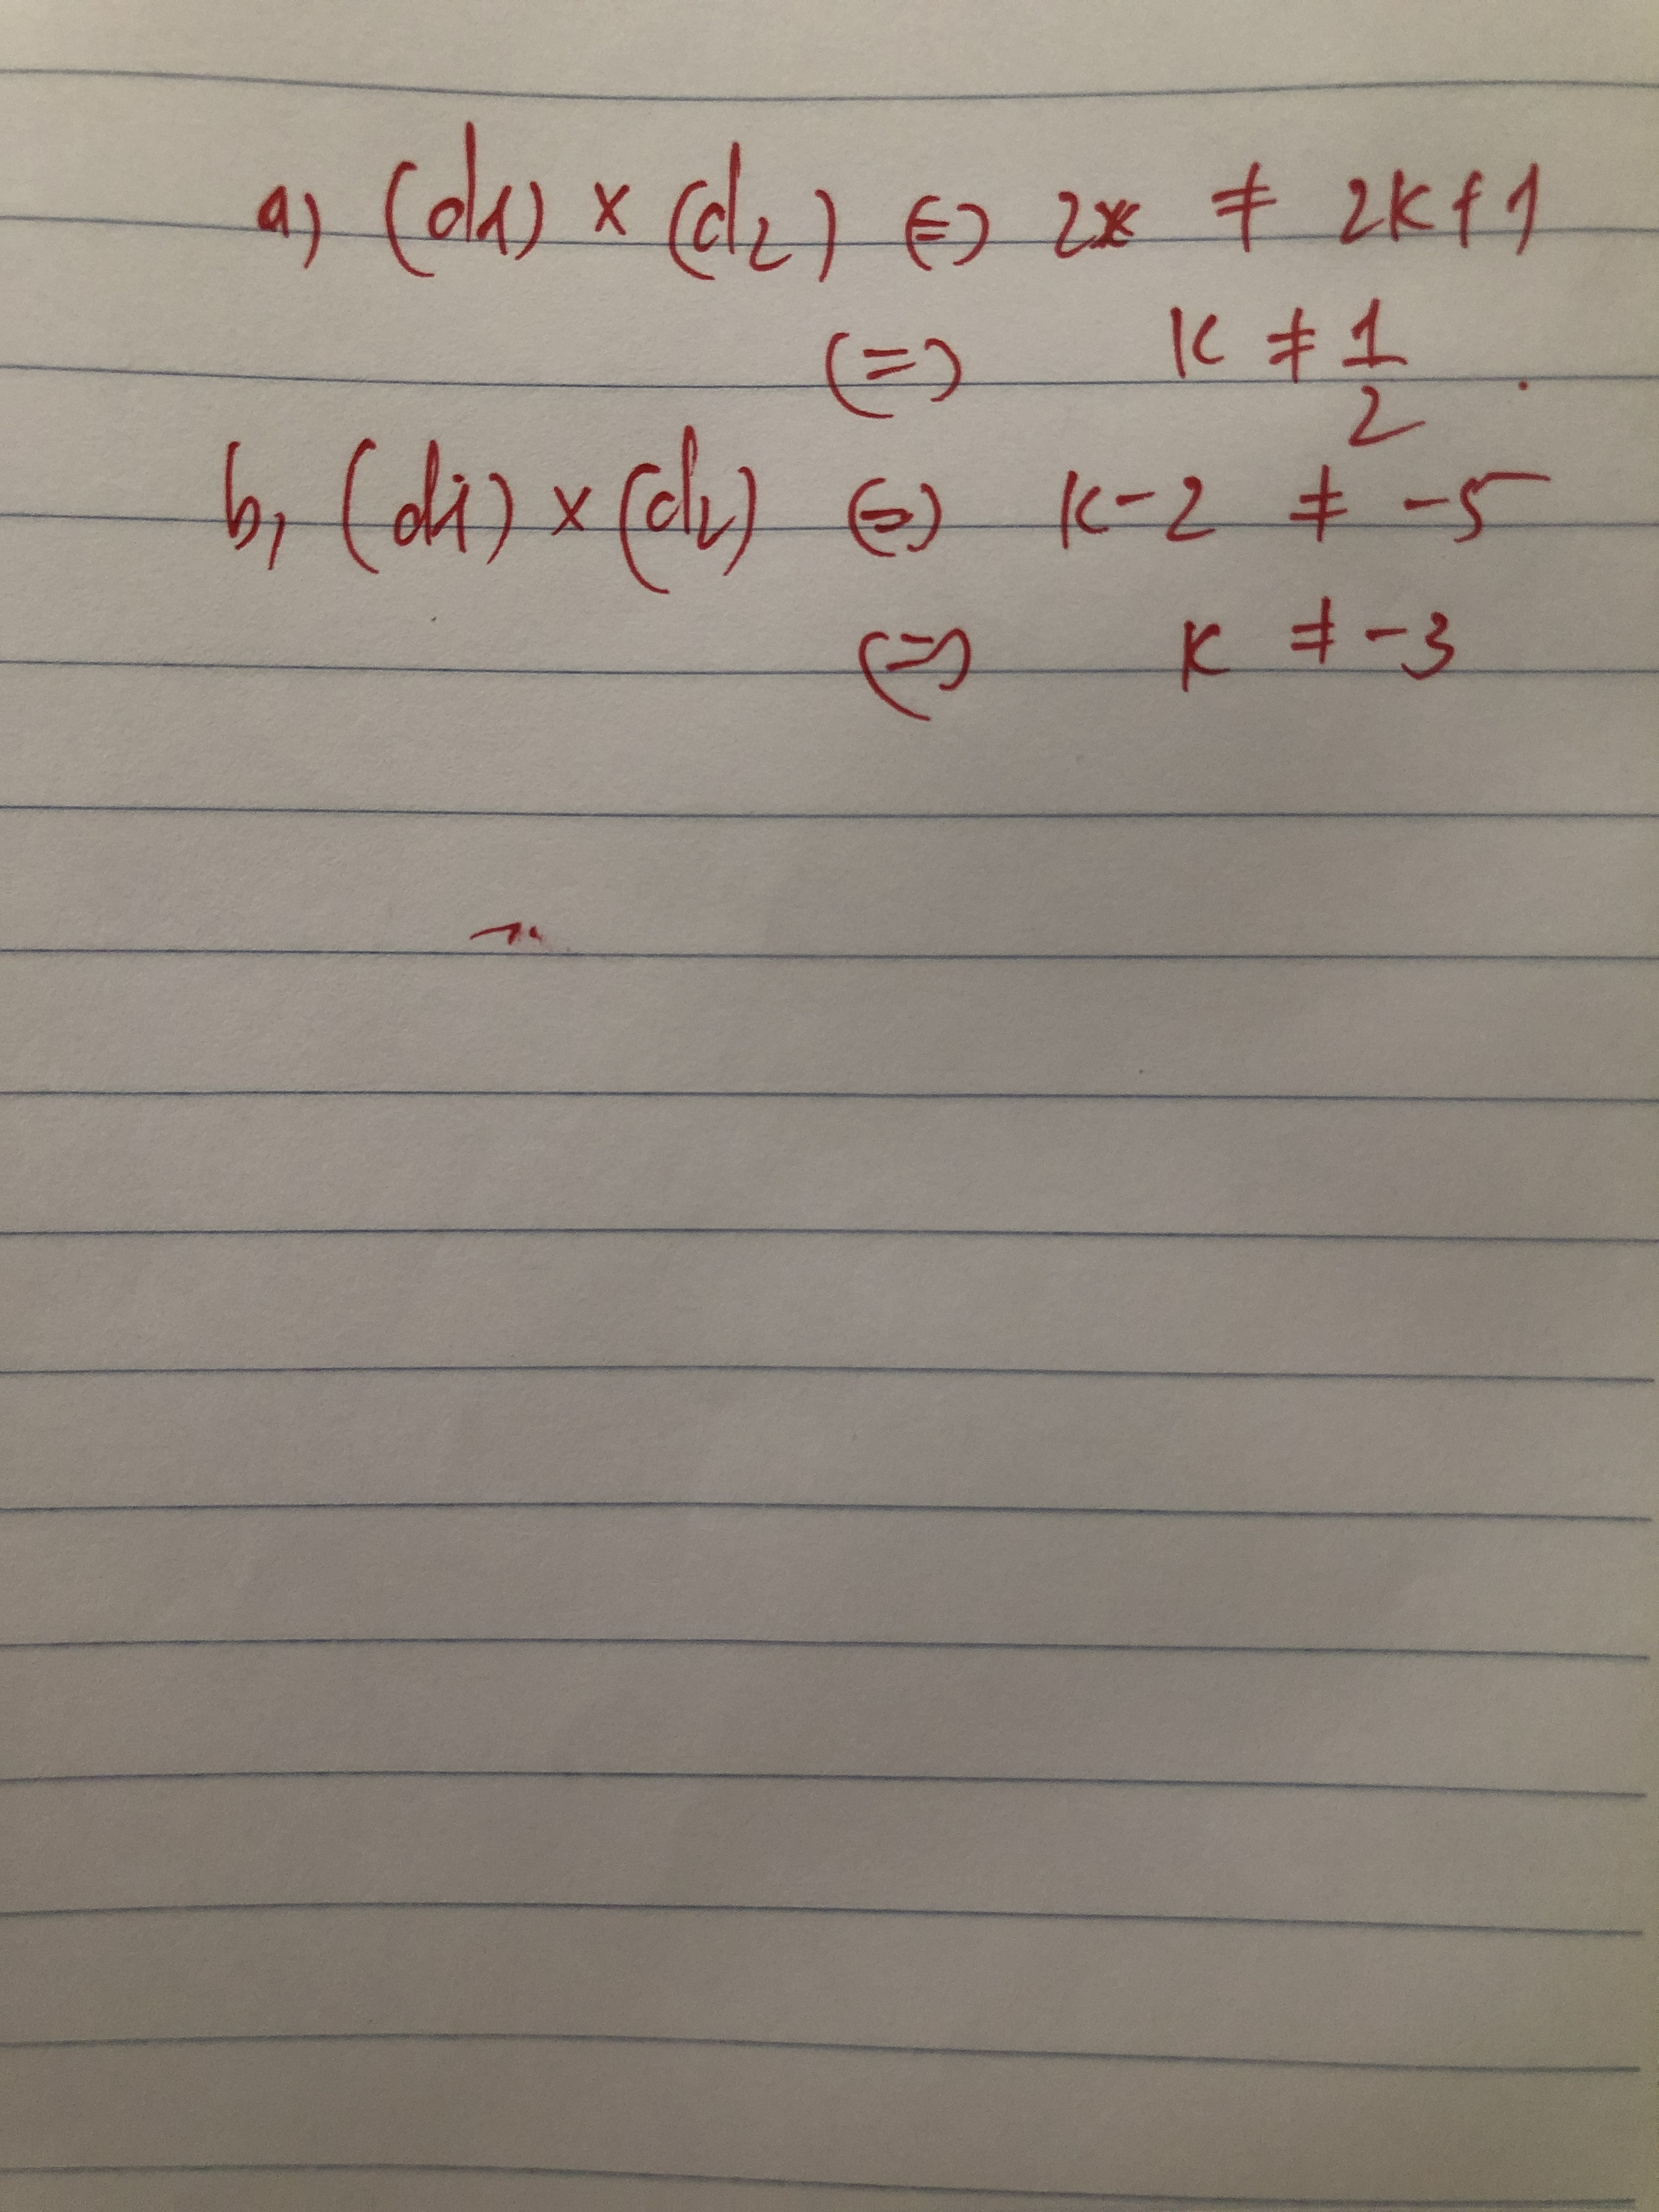 a) (d1) × (d2) (=) 2x ≠ 2k+1
(=) k ≠ 1/2 .
b, (d1) × (d2) (=) k-2 ≠ -5
(=) k ≠ -3